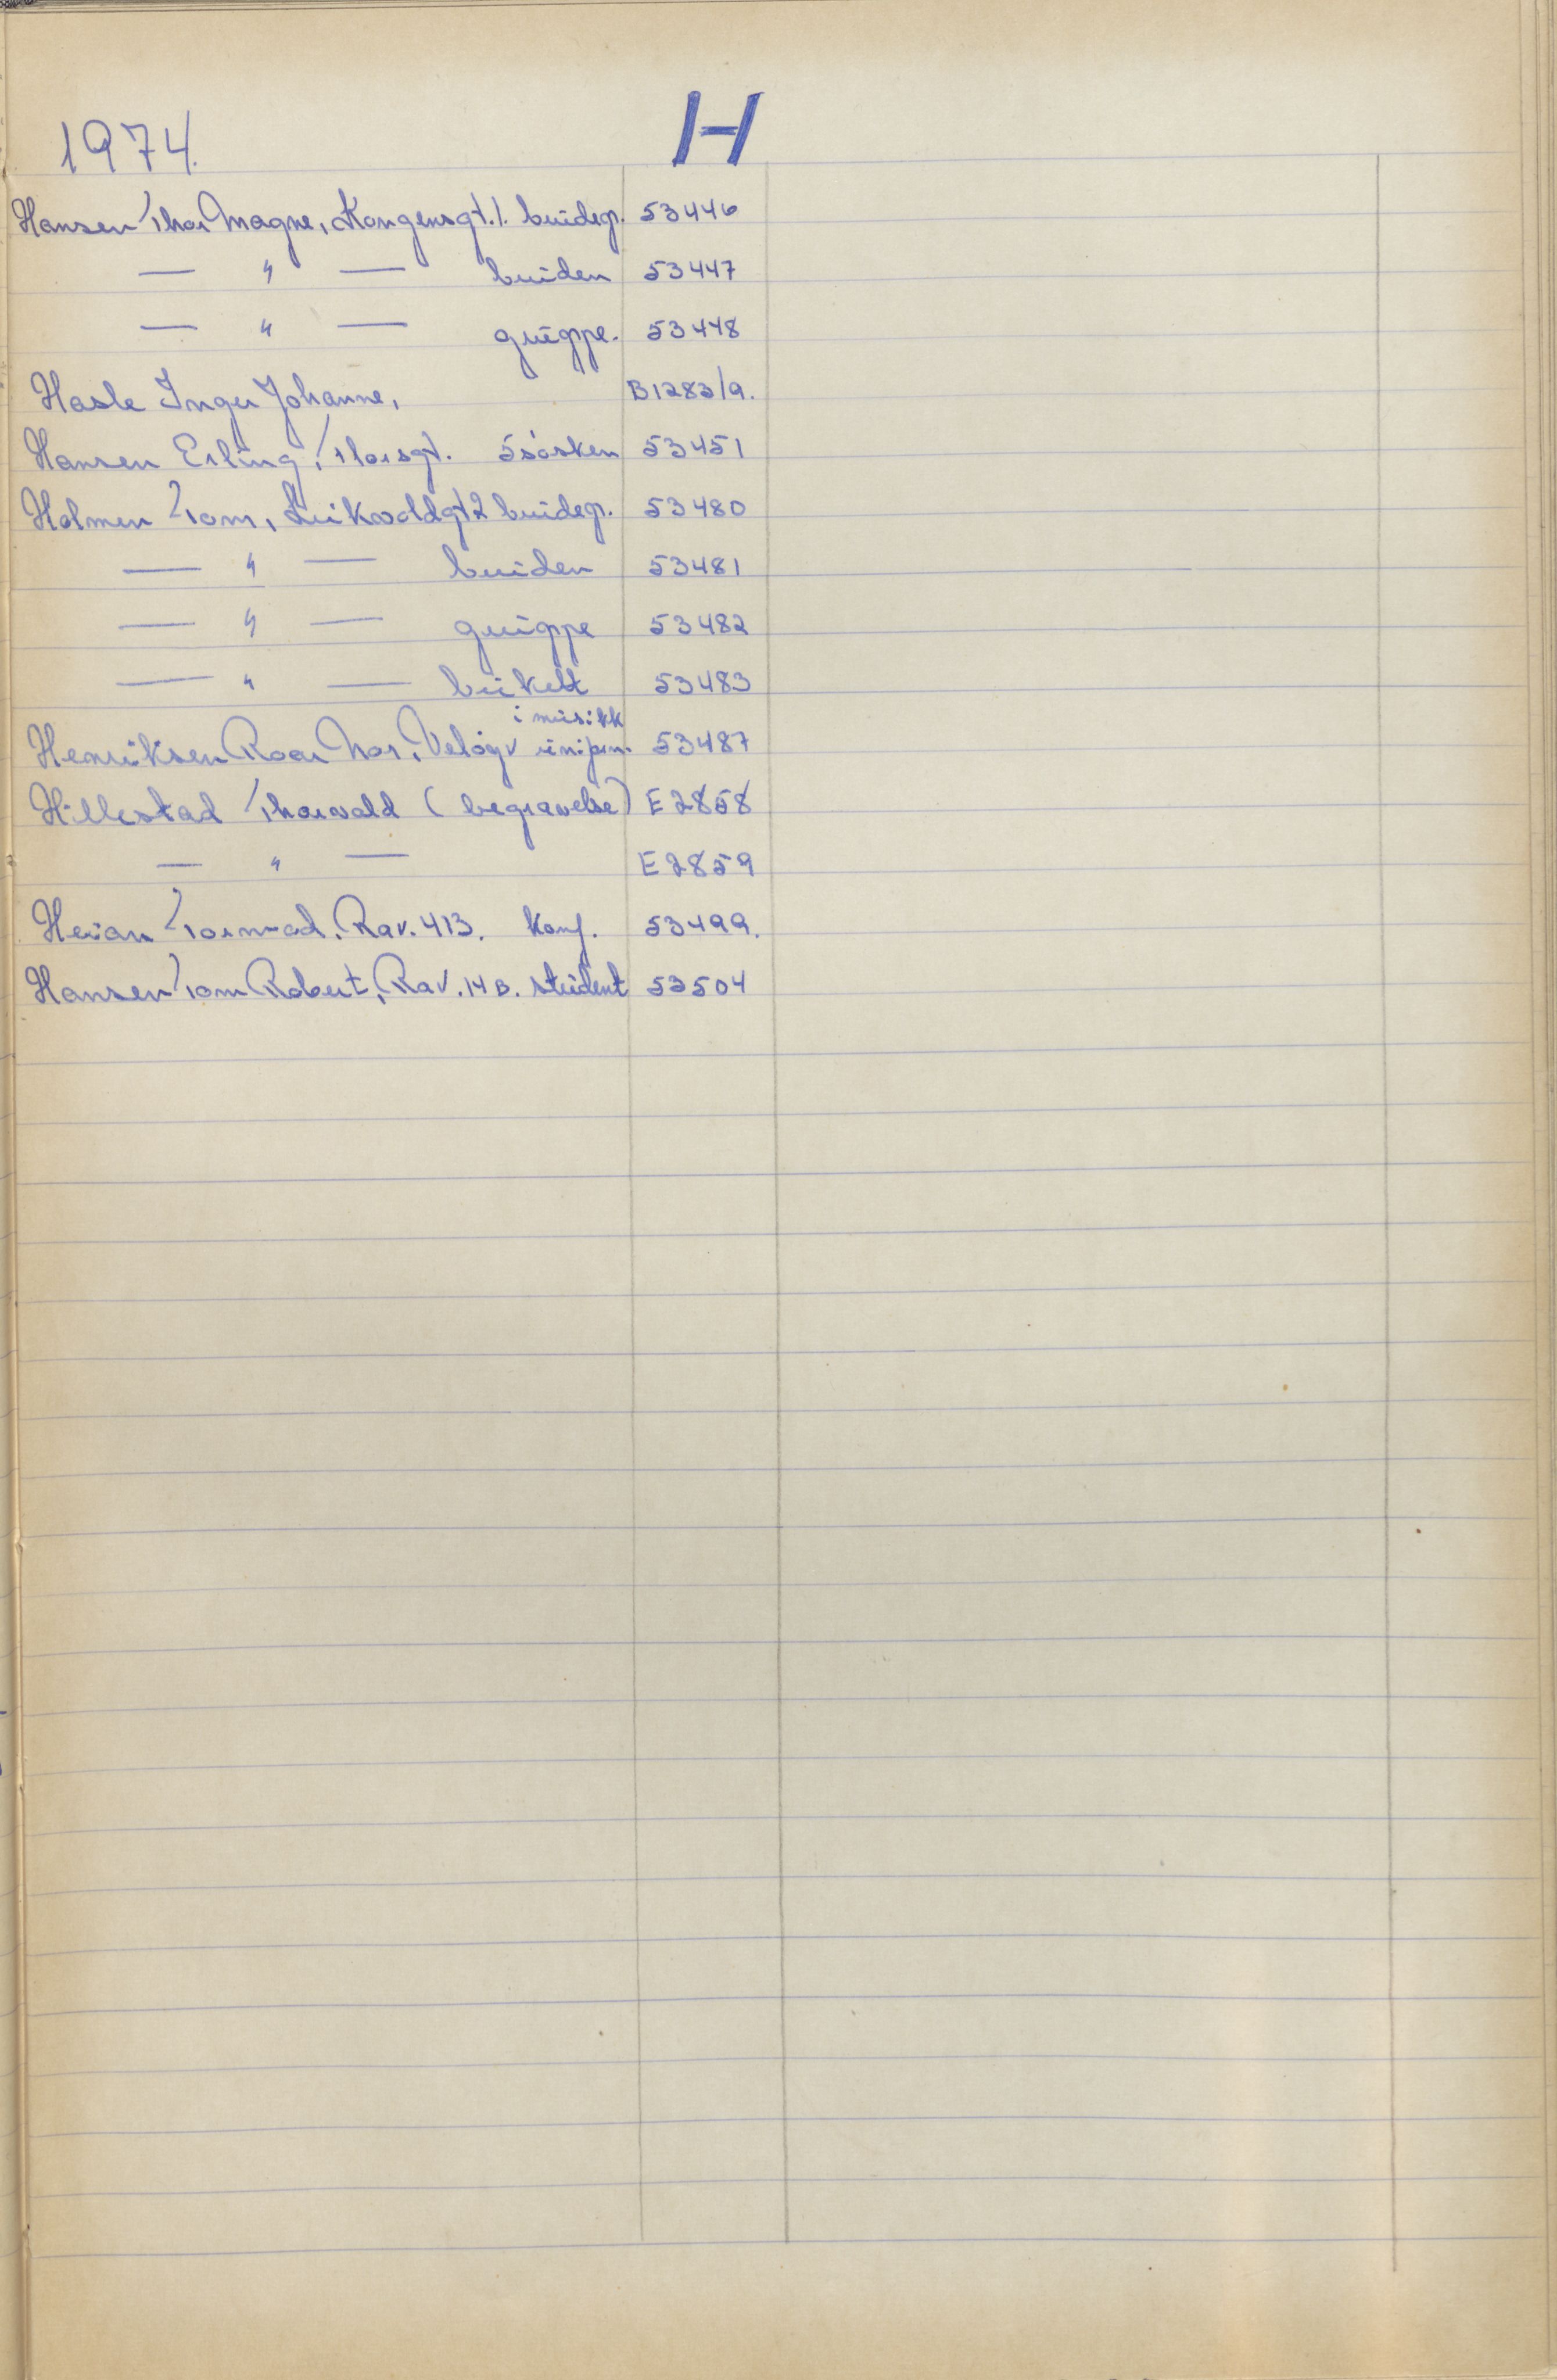 1974. H
Hansen Thor Magne, Kongensgt. 1. brudep. 53446
— " — bruden 53447
— " — gruppe. 53448
Hasle Inger Johanne, B1282/9.
Hansen Erling, Thorsgt. 5søsken 53451
Holmen Tom, gt 2 brudep. 53480
— " — bruden 53481
— " — gruppe 53482
— " — bukett 53483
i musikk
Henriksen Roar Thor, Veløyv unifm. 53487
Hillestad Thorvald (begravelse) E 2858
— " — E 2859
Heian Tormod, Rav. 413. Konf. 53499.
Hansen Tom Robert, Rav. 14 B. student 53504